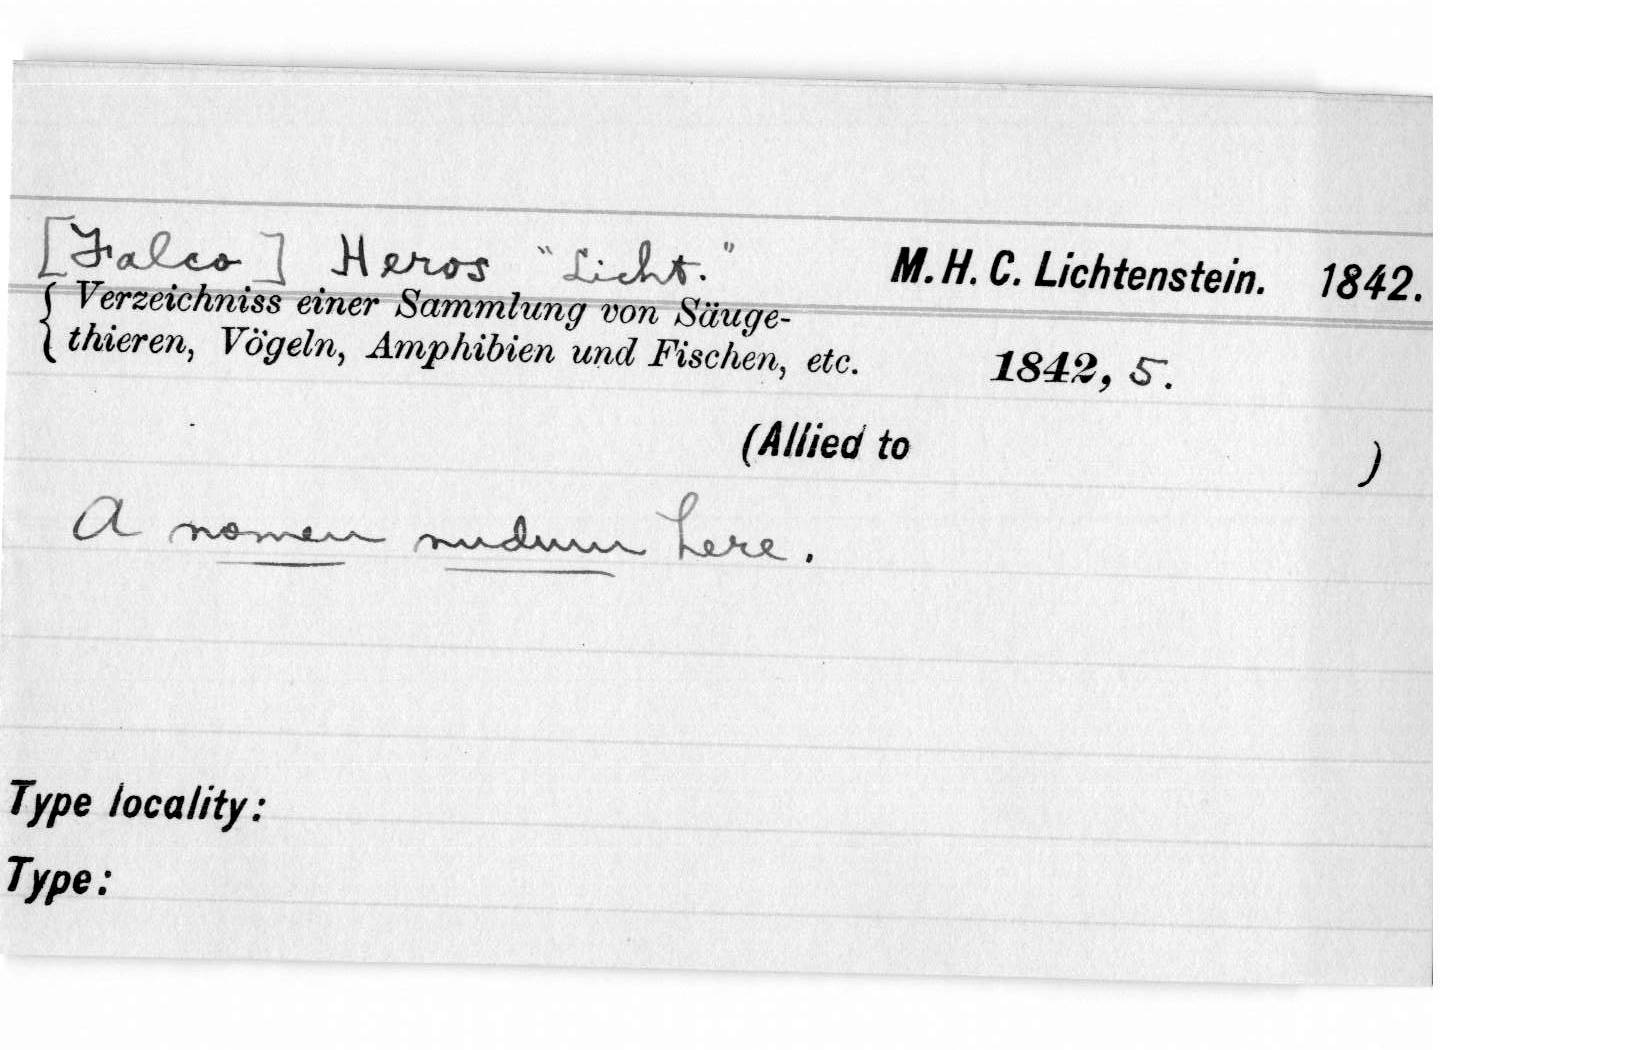 [Falco] Heros "Licht." M. H. C. Lichtenstein. 1842.
{ Verzeichniss einer Sammlung von Säuge-
thieren, Vögeln, Amphibien und Fischen, etc. 1842, 5.
(Allied to )
A nomen nudum here.
Type locality:
Type: